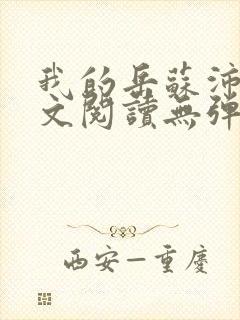 我的岳蘇沛
文閱讀無彈
西安－重慶